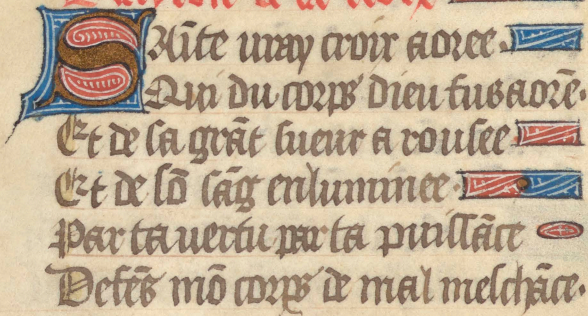 Saīte vray croix aoree
Qui du corps dieu fus aorē.
Et de sa grāt sueur arousee
Et de sō sāg enluminee.
Par ta vertu par ta puissāce
Defēs mō corps de mal meschāce.